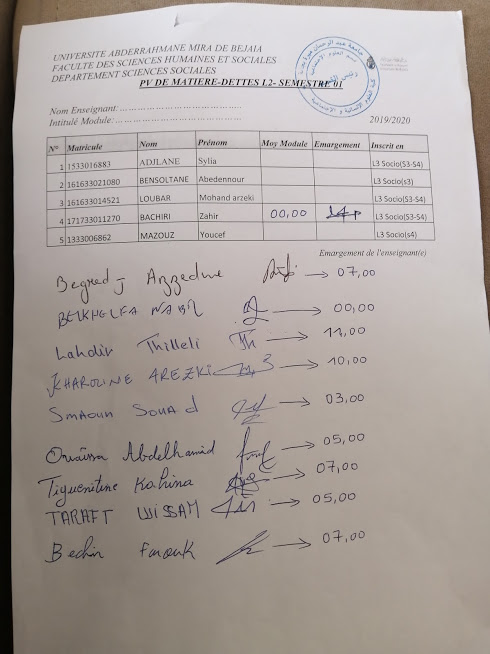 UNIVERSITE ABDERRAHMANE MIRA DE BEJAIA
FACULTE DES SCIENCES HUMAINES ET SOCIALES
DEPARTEMENT SCIENCES SOCIALES
PV DE MATIERE-DETTES L2- SEMESTRE 01
Nom Enseignant:
Intitulé Module:
2019/2020
N° Matricule Nom Prénom Moy Module Emargement Inscrit en
1 1533016883 ADJLANE Sylia L3 Socio(S3-S4)
2 161633021080 BENSOLTANE Abedennour L3 Socio(s3)
3 161633014521 LOUBAR Mohand arzeki L3 Socio(S3-S4)
4 171733011270 BACHIRI Zahir 00,00 L3 Socio(S3-S4)
5 1333006862 MAZOUZ Youcef L3 Socio(s4)
Emargement de l'enseignant(e)
Azzedine → 07,00
BELKHELFA NABIL → 00,00
Lahdir Thilleli → 11,00
KHAROUNE AREZKI → 10,00
SMAOUN SOUAd → 03,00
Ouaissa Abdelhamid → 05,00
Tiguenitine Kahina → 07,00
TARAFT WISSAM → 05,00
Bechir Farouk → 07,00